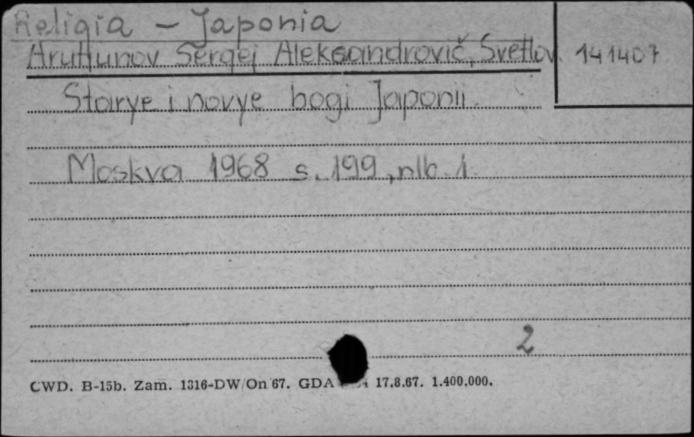 Religia - Japonia
Arutiunov Sergej Aleksandrovič, Svetlov
141407
Starye i novye bogi Japonii.
Moskva 1968 s. 199, nlb. 1.
2
CWD. B-15b. Zam. 1316-DW/On 67. GDA 17.8.67. 1.400.000.